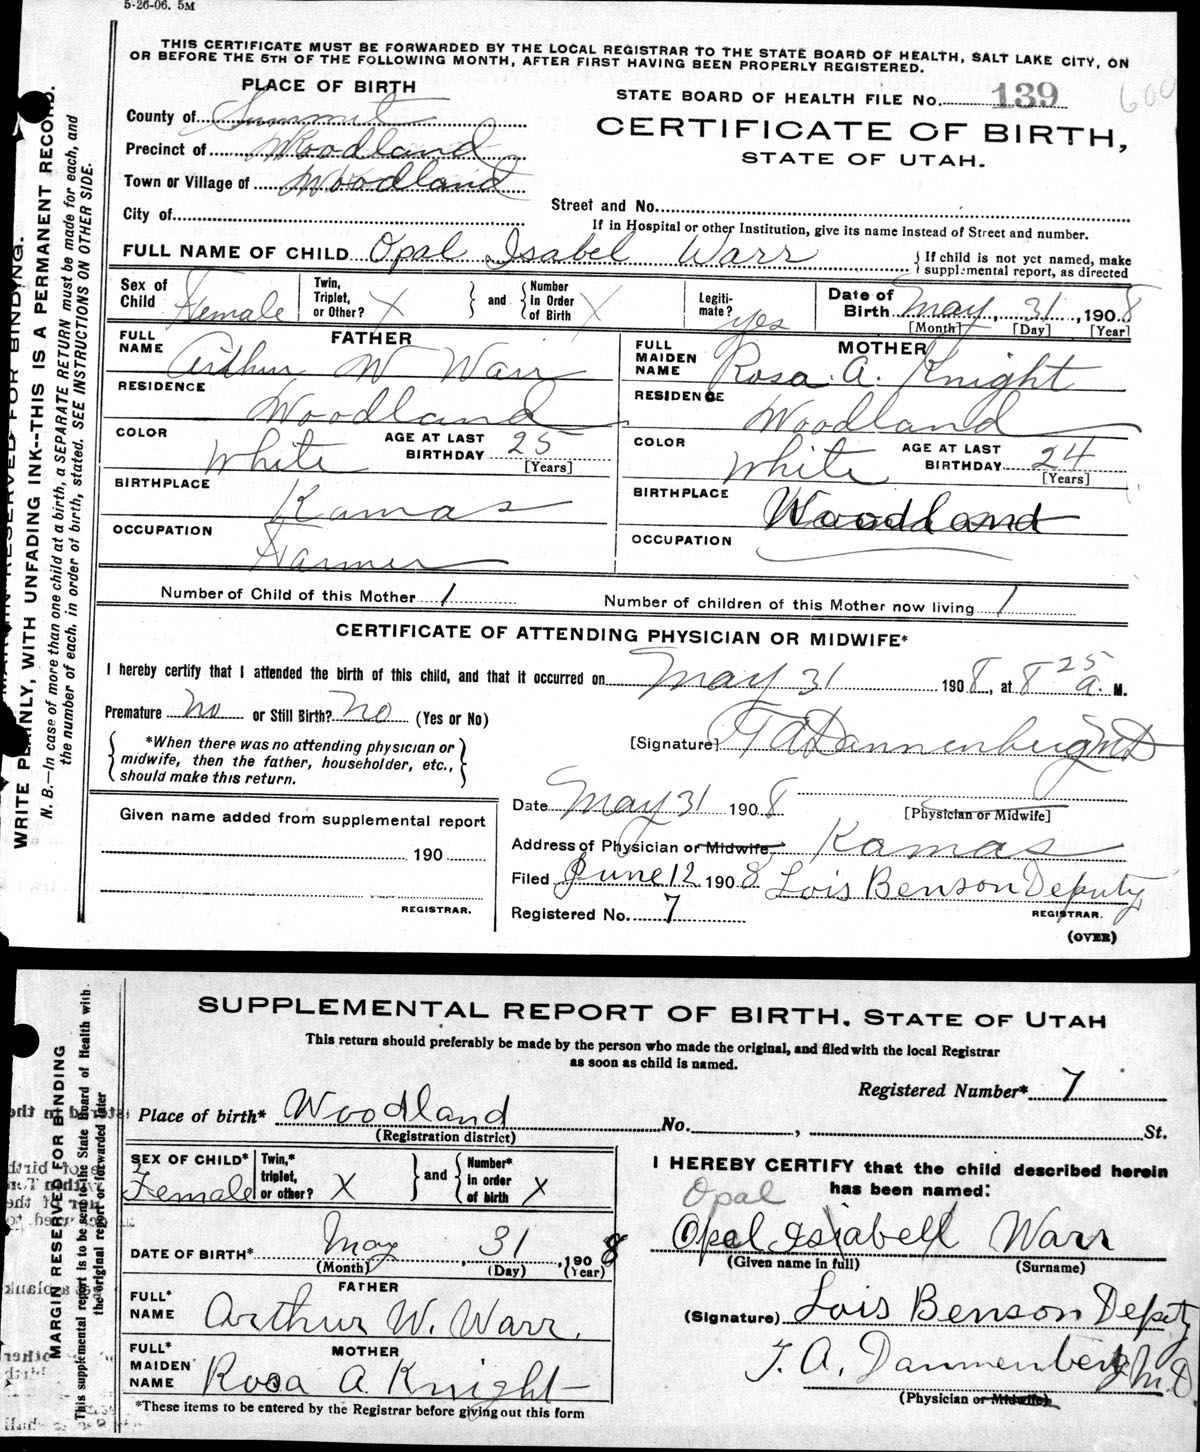 5-26-06. 5M
THIS CERTIFICATE MUST BE FORWARDED BY THE LOCAL REGISTRAR TO THE STATE BOARD OF HEALTH, SALT LAKE CITY, ON
OR BEFORE THE 5TH OF THE FOLLOWING MONTH, AFTER FIRST HAVING BEEN PROPERLY REGISTERED.
PLACE OF BIRTH
STATE BOARD OF HEALTH FILE No. 139
600
County of Summit
CERTIFICATE OF BIRTH,
Precinct of Woodland
STATE OF UTAH.
Town or Village of Woodland
City of
Street and No.
If in Hospital or other Institution, give its name instead of Street and number.
FULL NAME OF CHILD Opal Isabel Warr
{ If child is not yet named, make
supplemental report, as directed
Sex of Child Female
Twin, Triplet, or Other? X } and { Number in Order of Birth X
Legiti-mate? yes
Date of Birth May 31, 1908
[Month] [Day] [Year]
FATHER
FULL NAME Arthur W Warr
RESIDENCE Woodland
COLOR White AGE AT LAST BIRTHDAY 25 [Years]
BIRTHPLACE Kamas
OCCUPATION Farmer
MOTHER
FULL MAIDEN NAME Rosa. A. Knight
RESIDENCE Woodland
COLOR White AGE AT LAST BIRTHDAY 24 [Years]
BIRTHPLACE Woodland
OCCUPATION
Number of Child of this Mother 1
Number of children of this Mother now living 1
CERTIFICATE OF ATTENDING PHYSICIAN OR MIDWIFE*
I hereby certify that I attended the birth of this child, and that it occurred on May 31 1908, at 8 25 a. M.
Premature no or Still Birth? no (Yes or No)
{ *When there was no attending physician or
midwife, then the father, householder, etc.,
should make this return. }
[Signature] F A Dannenberg MD
Date May 31 1908
[Physician or Midwife]
Given name added from supplemental report
190
REGISTRAR.
Address of Physician or Midwife, Kamas
Filed June 12 1908 Lois Benson Deputy
REGISTRAR.
Registered No. 7
(OVER)
MARGIN RESERVED FOR BINDING.
WRITE PLAINLY, WITH UNFADING INK--THIS IS A PERMANENT RECORD.
N. B.—In case of more than one child at a birth, a SEPARATE RETURN must be made for each, and
the number of each, in order of birth, stated. SEE INSTRUCTIONS ON OTHER SIDE.
SUPPLEMENTAL REPORT OF BIRTH, STATE OF UTAH
This return should preferably be made by the person who made the original, and filed with the local Registrar
as soon as child is named.
Registered Number* 7
Place of birth* Woodland No. , St.
(Registration district)
SEX OF CHILD* Female
Twin,* triplet, or other? X } and { Number* in order of birth X
DATE OF BIRTH* May 31, 1908
(Month) (Day) (Year)
FATHER
FULL* NAME Arthur W. Warr.
MOTHER
FULL* MAIDEN NAME Rosa A. Knight
*These items to be entered by the Registrar before giving out this form
I HEREBY CERTIFY that the child described herein
has been named:
Opal
Opal Isabell Warr
(Given name in full) (Surname)
(Signature) Lois Benson Deputy
F. A. Dannenberg M.D
(Physician or Midwife)
MARGIN RESERVED FOR BINDING
This supplemental report is to be sent to the State Board of Health with
the original report or forwarded later